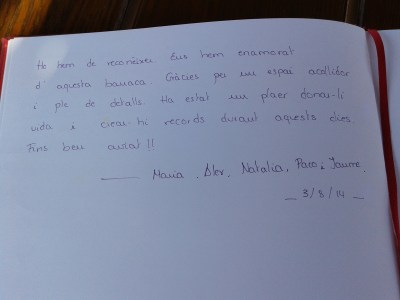 Ho hem de reconèixer. Ens hem enamorat
d aquesta barraca. Gràcies per un espai acollidor
i ple de detalls. Ha estat un plaer donar-li
vida i crear-hi records durant aquests dies.
Fins ben aviat!!
Maria, Alex, Natalia, Paco i Jaume.
3/8/14